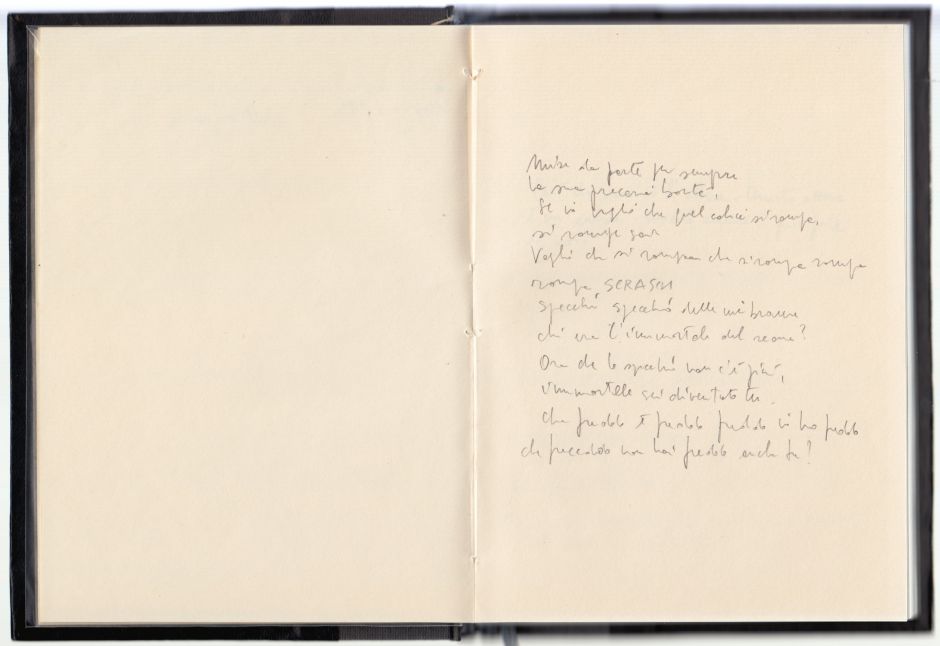 Mise da parte per sempre
la sua precaria sorte.
Se io voglio che quel calice si rompa,
si rompe
Voglio che si rompa che si rompa rompa
rompa SCRASH
specchio specchio delle mie brame
chi era l'immortale del reame?
Ora che lo specchio non c'è più,
l'immortale sei diventato tu.
Che freddo è freddo freddo io ho freddo
che freddo non hai freddo anche tu?